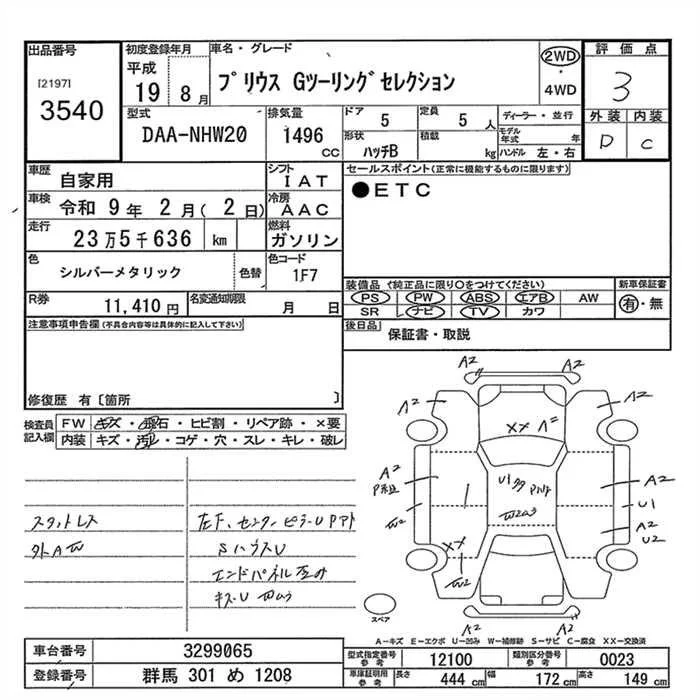 出品番号
[2197]
3540
初度登録年月
平成
19 8月
車名・グレード
プリウス Gツーリングセレクション
2WD
・
4WD
評価点
3
外装 内装
D C
型式
DAA-NHW20
排気量
1496
CC
ドア
5
定員
5 人
形状
ハッチB
積載
kg
ディーラー・並行
モデル年式 年
ハンドル 左・右
車歴
自家用
シフト
IAT
セールスポイント(正常に機能するものに限ります)
●ETC
車検
令和 9年 2月( 2日)
冷房
AAC
走行
23万5千636 km
燃料
ガソリン
色
シルバーメタリック
色替
色コード
1F7
R券
11,410円
名変通知期限
月 日
装備品(純正品に限り○をつけてください)
PS PW ABS エアB AW
SR ナビ TV カワ
新車保証書
有・無
後日品
保証書・取説
注意事項申告欄(不具合内容等は具体的に記入して下さい)
修復歴 有〔箇所 〕
検査員記入欄
FW キズ・飛石・ヒビ割・リペア跡・×要
内装 キズ・汚レ・コゲ・穴・スレ・キレ・破レ
スタットレス
キズU
A2
A2
A2
A2
XX
A2
A2
U1
A2
U1
A2
U2
XX
W2
A2
A2
スペア
A-キズ E-エクボ U-凹み W-補修跡 S-サビ C-腐食 XX-交換済
車台番号
3299065
登録番号
群馬 301 め 1208
型式指定番号
参考
12100
類別区分番号
参考
0023
車庫証明用
参考
長さ
444 cm
幅
172 cm
高さ
149 cm